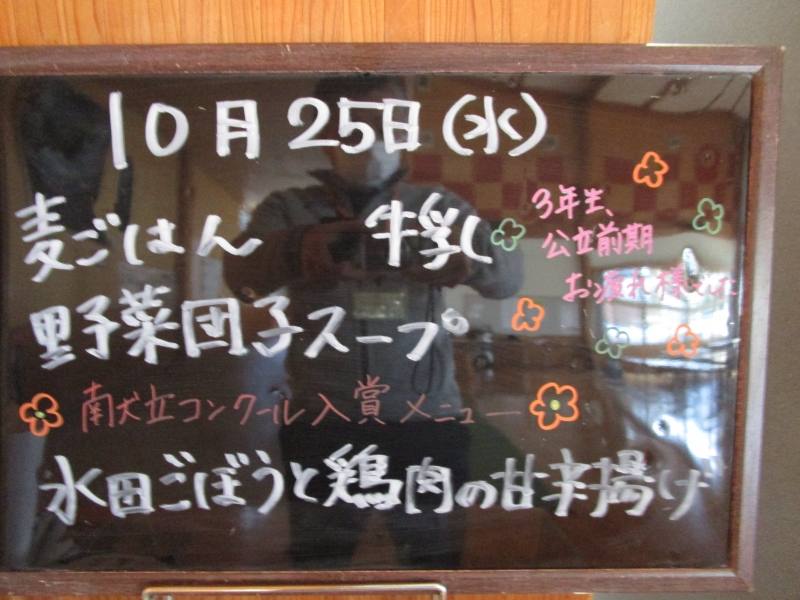 10月25日(水)
麦ごはん 牛乳
3年生、
公立前期
お疲れ様でした
野菜団子スープ
献立コンクール入賞メニュー
水田ごぼうと鶏肉の甘辛揚げ